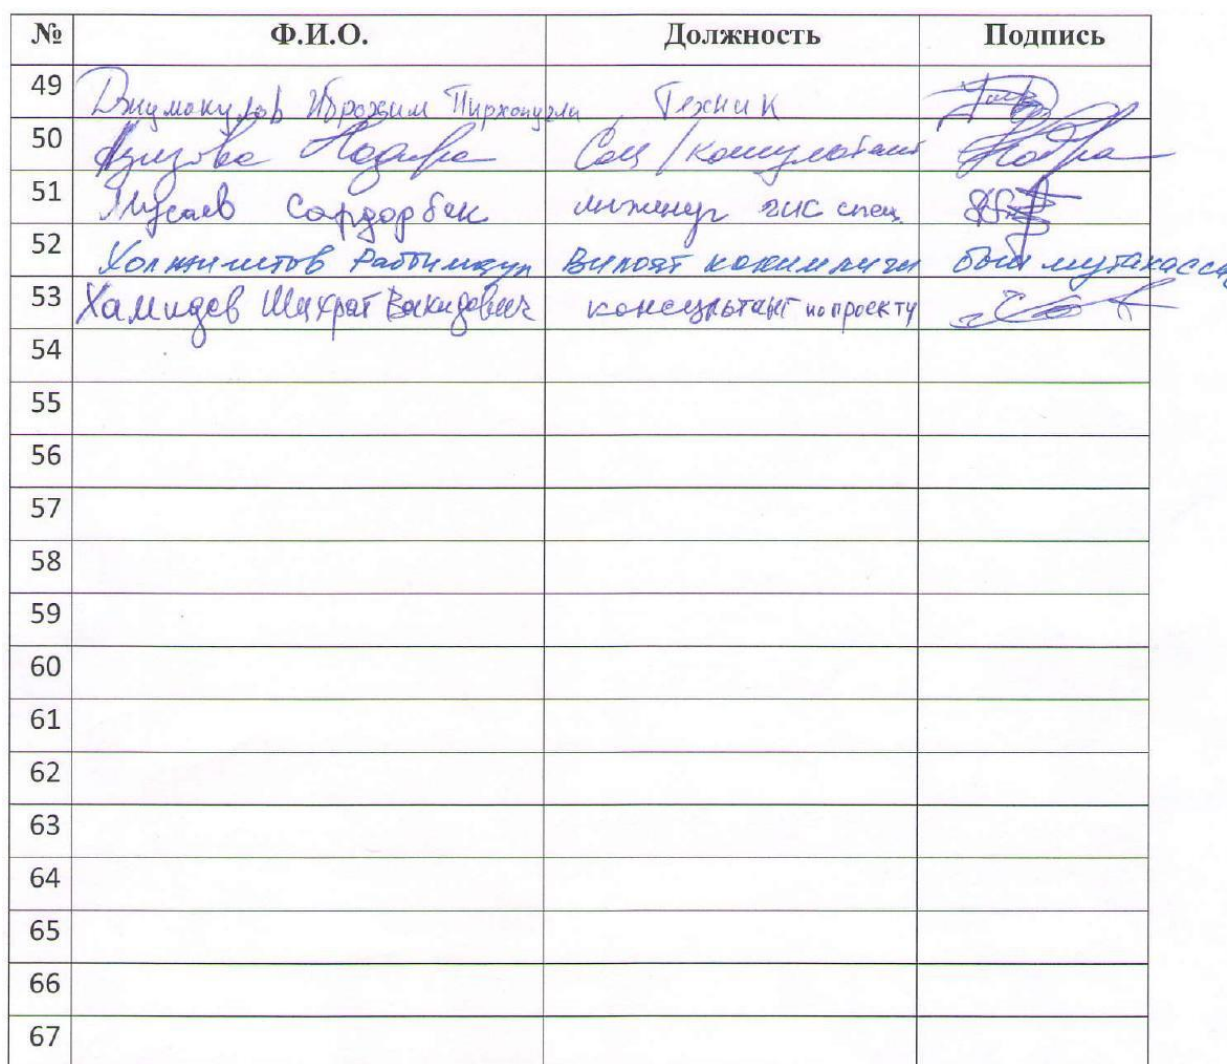 № Ф.И.О. Должность Подпись
49 Джумакулов Иброхим Техник
50 Азизова Надира Соц/консультант
51 Мусаев Сардорбек инженер гис спец.
52 Вилоят хокимлиги бош мутахасси
53 Хамидов Шухрат Вахидович консультант по проекту
54
55
56
57
58
59
60
61
62
63
64
65
66
67